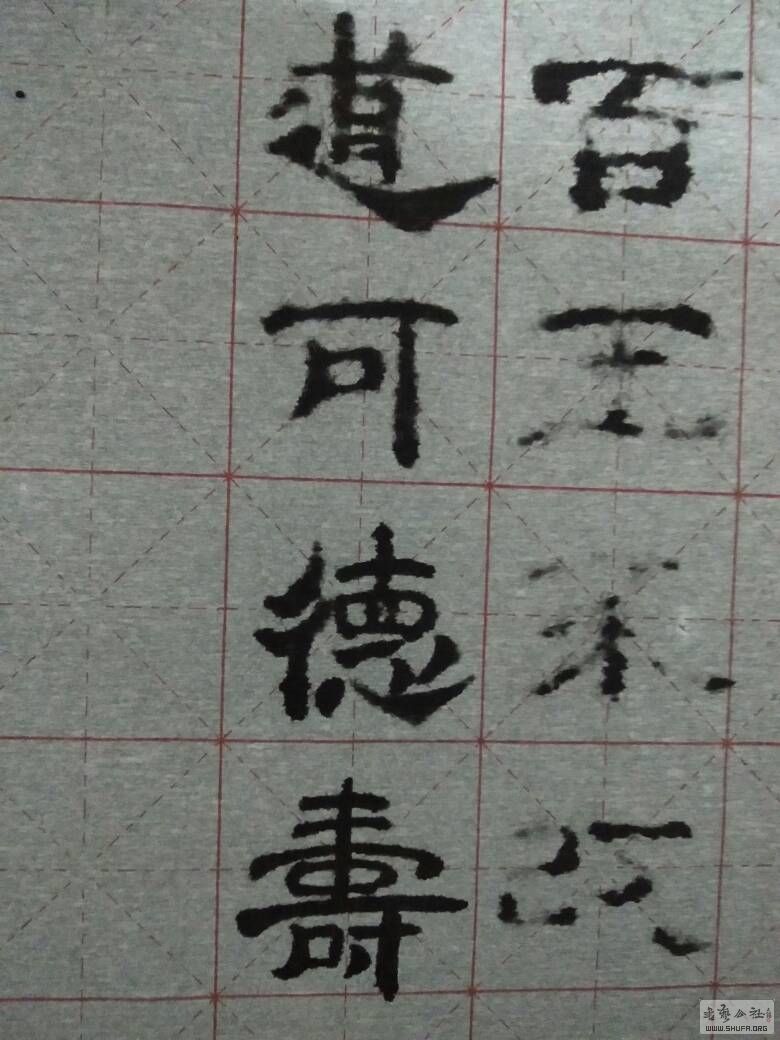 百王不改
道可德壽
书艺公社
WWW.SHUFA.ORG